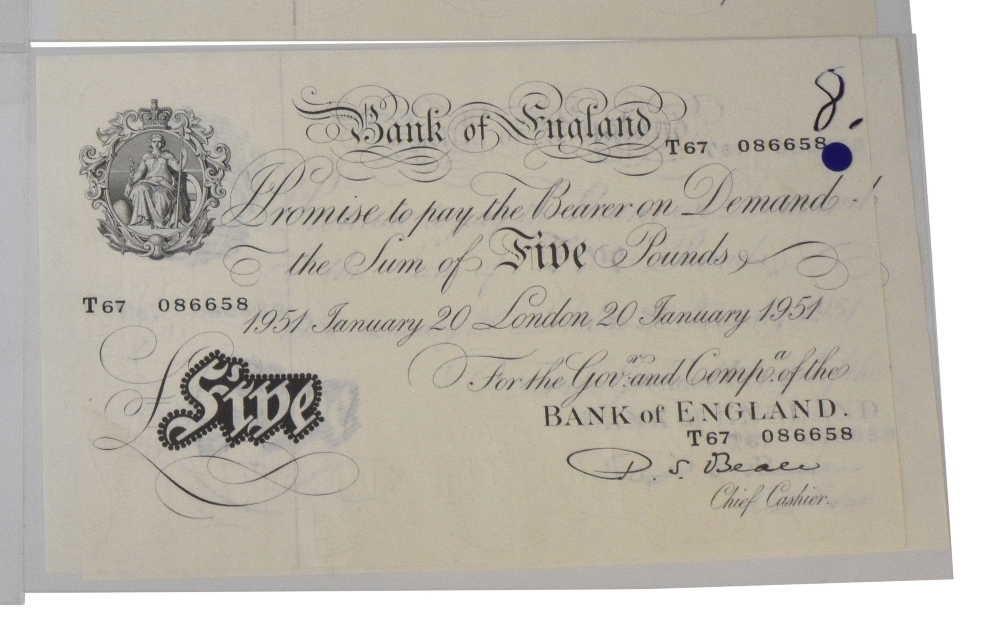 8.
Bank of England
T67 086658
I Promise to pay the Bearer on Demand
the Sum of Five Pounds
T67 086658
1951 January 20 London 20 January 1951
For the Gov.r and Comp.a of the
BANK of ENGLAND.
£Five
T67 086658
P. S. Beale
Chief Cashier.